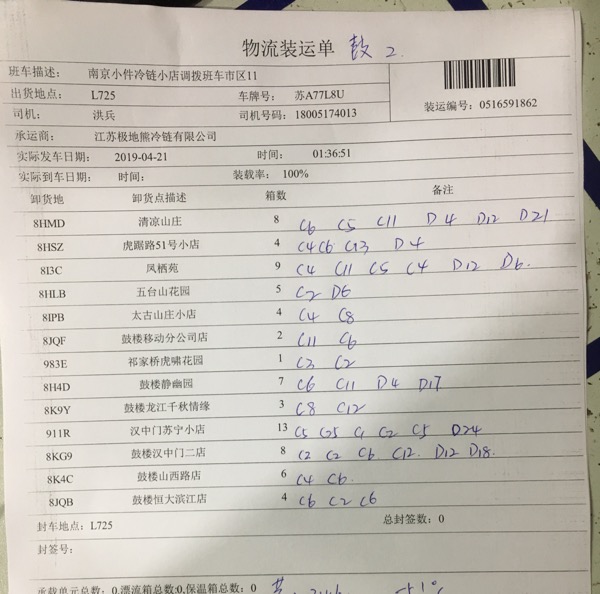 物流装运单 鼓 2
班车描述： 南京小件冷链小店调拨班车市区11
出货地点： L725 车牌号： 苏A77L8U
装运编号：0516591862
司机： 洪兵 司机号码：18005174013
承运商： 江苏极地熊冷链有限公司
实际发车日期： 2019-04-21 时间： 01:36:51
实际到车日期： 时间： 装载率： 100%
卸货地 卸货点描述 箱数 备注
8HMD 清凉山庄 8 C6 C5 C11 D4 D12 D21
8HSZ 虎踞路51号小店 4 C4 C6 G13 D4
8I3C 凤栖苑 9 C4 C11 C5 C4 D12 D6.
8HLB 五台山花园 5 C2 D6
8IPB 太古山庄小店 4 C4 C8
8JQF 鼓楼移动分公司店 2 C11 C6
983E 祁家桥虎啸花园 1 C3 C2
8H4D 鼓楼静幽园 7 C6 C11 D4 D17
8K9Y 鼓楼龙江千秋情缘 3 C8 C12
911R 汉中门苏宁小店 13 C5 G5 C2 C5 D24
8KG9 鼓楼汉中门二店 8 C2 C2 C6 C12. D12 D18.
8K4C 鼓楼山西路店 6 C4 C6.
8JQB 鼓楼恒大滨江店 4 C6 C2 C6
封车地点：L725 总封签数：0
封签号：
承载单元总数：0,漂流箱总数:0,保温箱总数：0